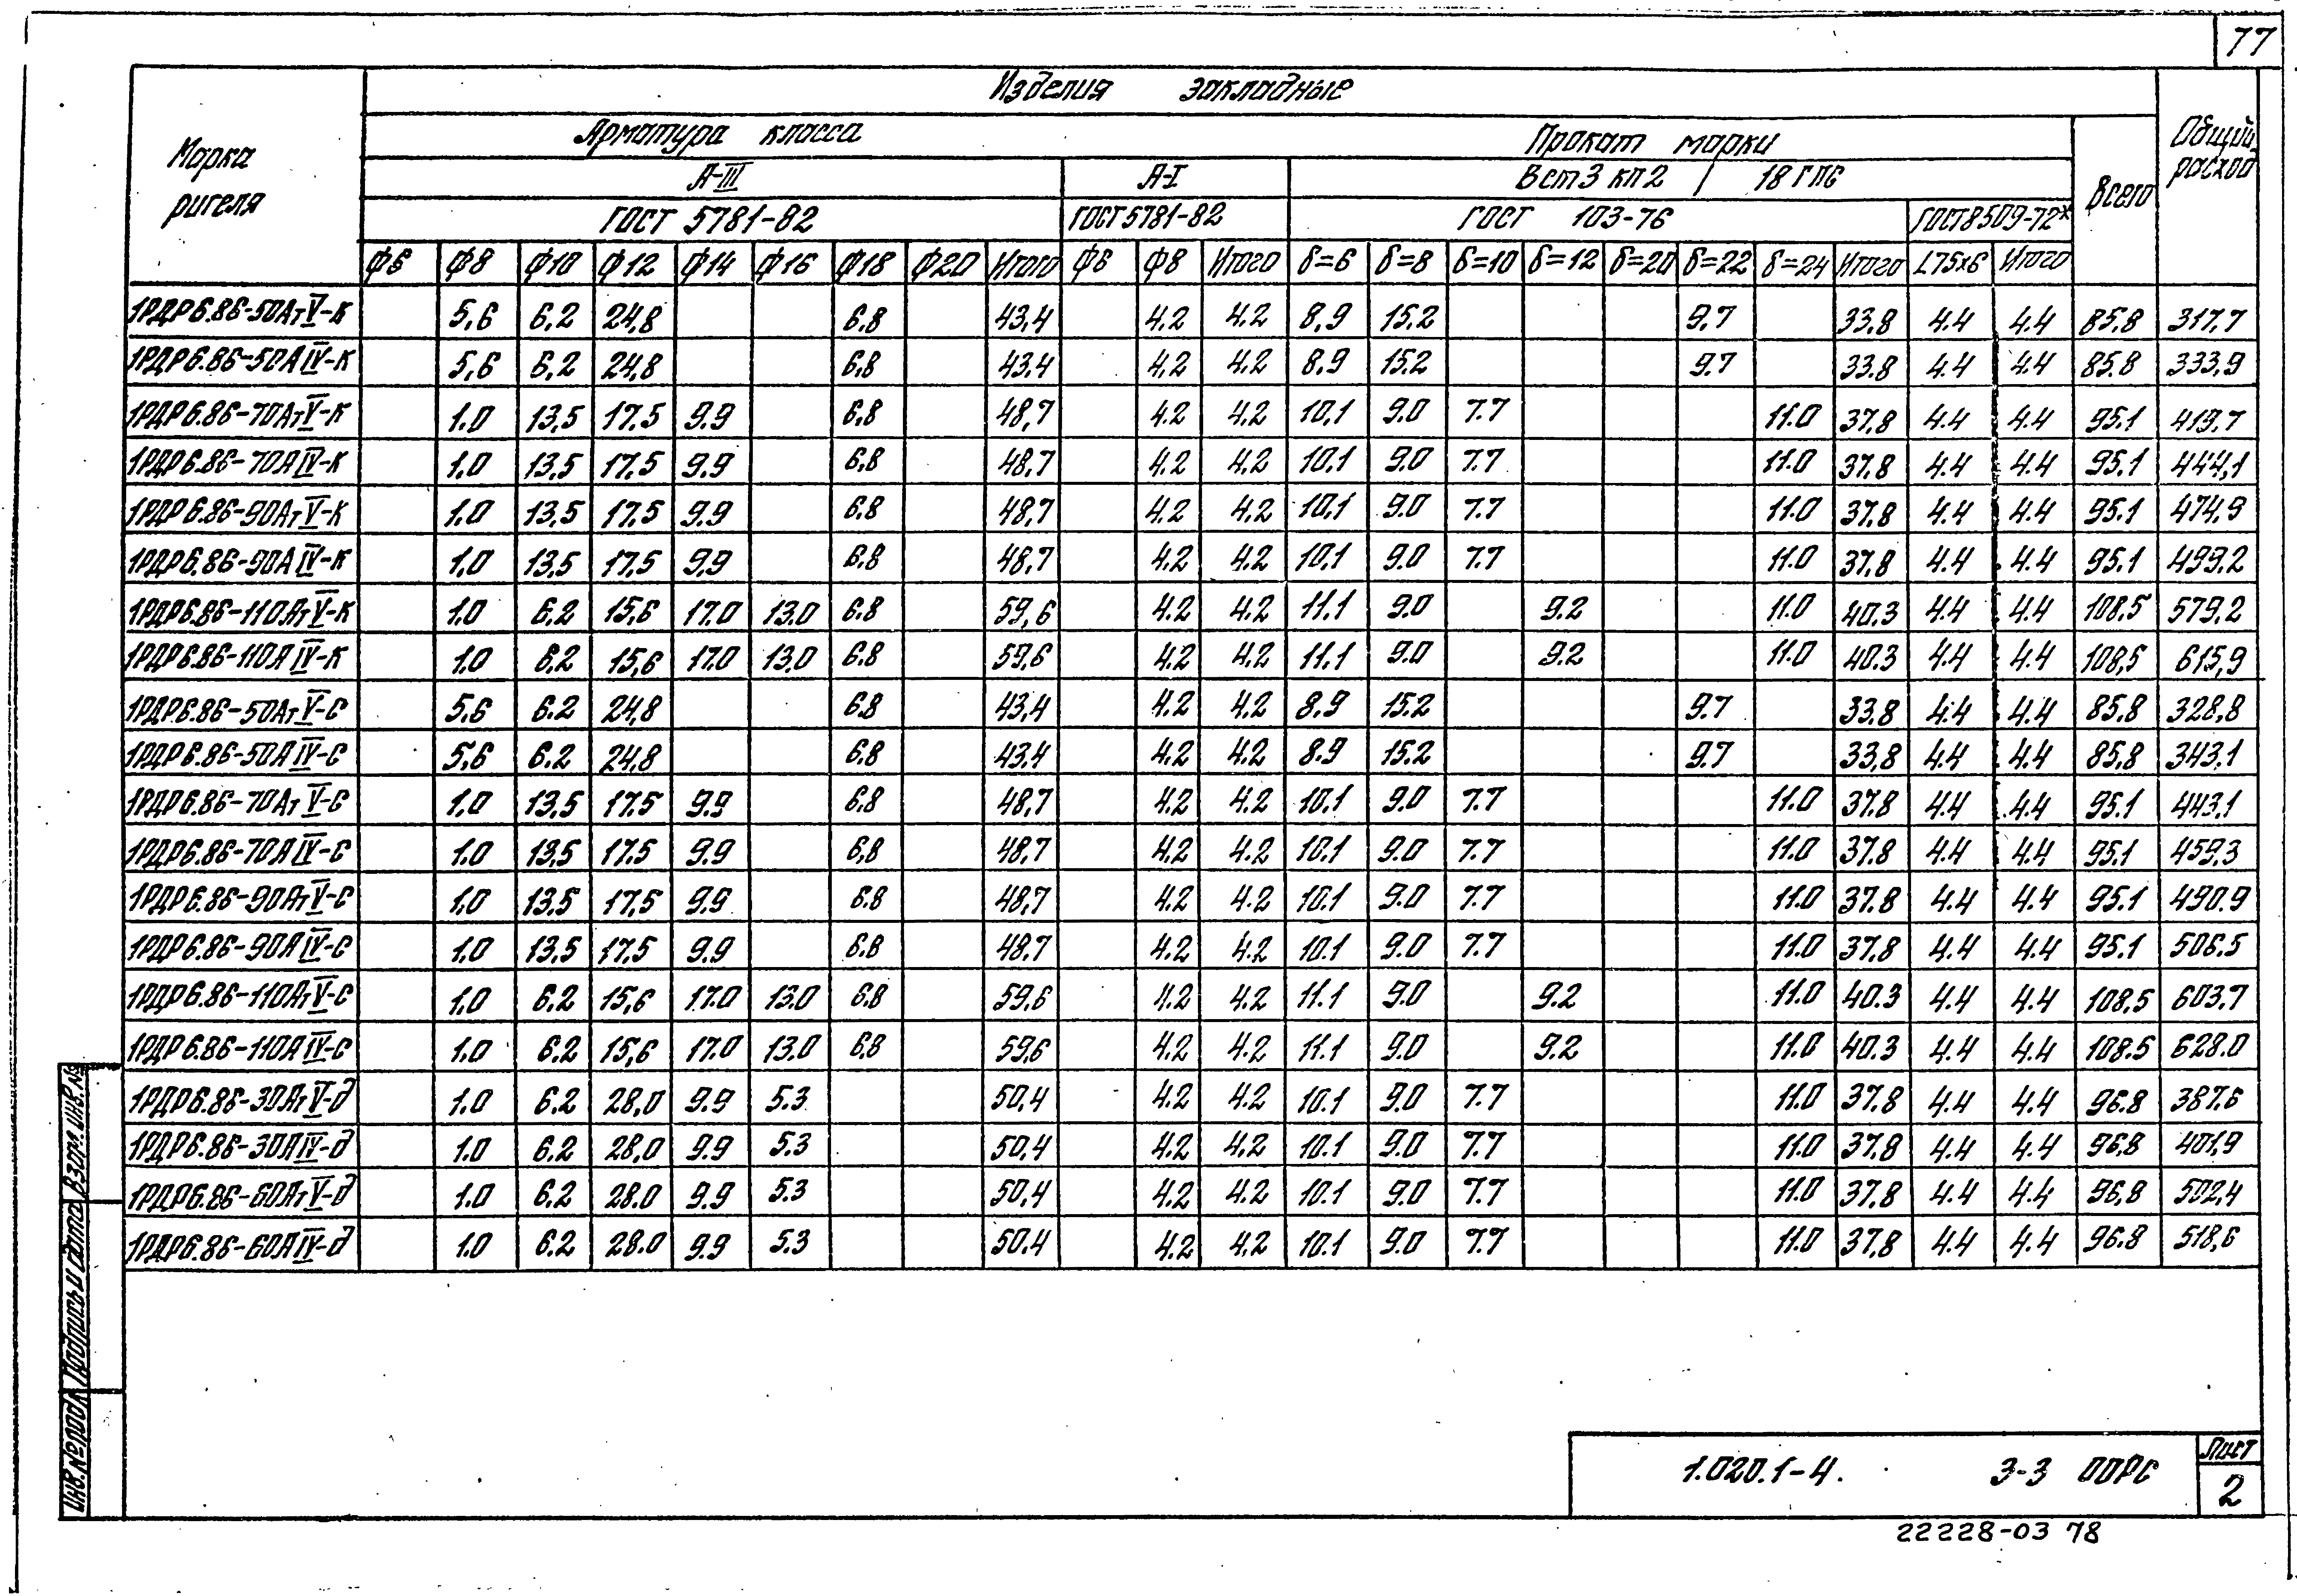 77
Изделия закладные
Марка ригеля
Арматура класса
Прокат марки
Всего
Общий расход
А-III
А-I
Вст3 кп2 / 18 Гпс
ГОСТ 5781-82
ГОСТ 5781-82
ГОСТ 103-76
ГОСТ 8509-72*
Ф6 Ф8 Ф10 Ф12 Ф14 Ф16 Ф18 Ф20 Итого Ф6 Ф8 Итого δ=6 δ=8 δ=10 δ=12 δ=20 δ=22 δ=24 Итого L75х6 Итого
1РДР6.86-50АтV-К 5,6 6,2 24,8 6.8 43,4 4.2 4,2 8,9 15.2 9.7 33.8 4.4 4.4 85,8 317,7
1РДР6.86-50АIV-К 5,6 6,2 24,8 6.8 43,4 4,2 4,2 8,9 15.2 9.7 33.8 4.4 4.4 85.8 333,9
1РДР6.86-70АтV-К 1.0 13,5 17.5 9.9 6,8 48,7 4.2 4,2 10,1 9.0 7.7 11.0 37,8 4.4 4.4 95.1 419,7
1РДР6.86-70АIV-К 1.0 13,5 17.5 9.9 6,8 48,7 4,2 4,2 10,1 9.0 7.7 11.0 37.8 4.4 4.4 95.1 444,1
1РДР6.86-90АтV-К 1.0 13,5 17.5 9.9 6.8 48,7 4.2 4,2 10,1 9.0 7.7 11.0 37,8 4.4 4.4 95.1 474,9
1РДР6.86-90АIV-К 1,0 13,5 17,5 9,9 6.8 48,7 4.2 4,2 10,1 9.0 7.7 11.0 37,8 4.4 4.4 95.1 499,2
1РДР6.86-110АтV-К 1.0 6,2 15,6 17.0 13.0 6.8 59,6 4.2 4,2 11.1 9.0 9.2 11.0 40,3 4.4 4.4 108,5 579,2
1РДР6.86-110АIV-К 1,0 6,2 15,6 17.0 13,0 6.8 59,6 4.2 4,2 11.1 9.0 9.2 11.0 40.3 4.4 4.4 108,5 615,9
1РДР6.86-50АтV-С 5.6 6.2 24,8 6.8 43,4 4.2 4,2 8.9 15.2 9.7 33.8 4.4 4.4 85.8 328,8
1РДР6.86-50АIV-С 5,6 6.2 24,8 6.8 43,4 4.2 4.2 8.9 15.2 9.7 33,8 4.4 4.4 85,8 343,1
1РДР6.86-70АтV-С 1,0 13.5 17.5 9.9 6,8 48,7 4.2 4.2 10.1 9.0 7.7 11.0 37.8 4.4 4.4 95.1 443,1
1РДР6.86-70АIV-С 1.0 13,5 17.5 9.9 6,8 48,7 4,2 4.2 10.1 9.0 7.7 11.0 37.8 4.4 4.4 95.1 459,3
1РДР6.86-90АтV-С 1,0 13.5 17,5 9.9 6.8 48,7 4.2 4.2 10.1 9.0 7.7 11.0 37.8 4.4 4.4 95.1 490.9
1РДР6.86-90АIV-С 1.0 13,5 17,5 9.9 6.8 48.7 4.2 4.2 10.1 9.0 7.7 11.0 37,8 4.4 4.4 95.1 506.5
1РДР6.86-110АтV-С 1.0 6.2 15,6 17.0 13.0 6.8 59,6 4.2 4.2 11.1 9.0 9.2 11.0 40.3 4.4 4.4 108,5 603.7
1РДР6.86-110АIV-С 1.0 6.2 15,6 17.0 13.0 6.8 59,6 4.2 4.2 11.1 9.0 9.2 11.0 40.3 4.4 4.4 108.5 628.0
1РДР6.86-30АтV-д 1.0 6.2 28,0 9.9 5.3 50,4 4.2 4.2 10.1 9.0 7.7 11.0 37.8 4.4 4.4 96.8 387,6
1РДР6.86-30АIV-д 1.0 6.2 28,0 9.9 5.3 50,4 4.2 4,2 10.1 9.0 7.7 11.0 37,8 4.4 4.4 96,8 401,9
1РДР6.86-60АтV-д 1.0 6.2 28.0 9.9 5.3 50,4 4.2 4.2 10.1 9.0 7.7 11.0 37,8 4.4 4.4 96,8 502,4
1РДР6.86-60АIV-д 1.0 6.2 28.0 9.9 5.3 50.4 4.2 4,2 10.1 9.0 7.7 11.0 37,8 4.4 4.4 96.8 518,6
Инв.№подл. Подпись и дата Взам.инв.№
1.020.1-4. 3-3 00РС
Лист
2
22228-03 78